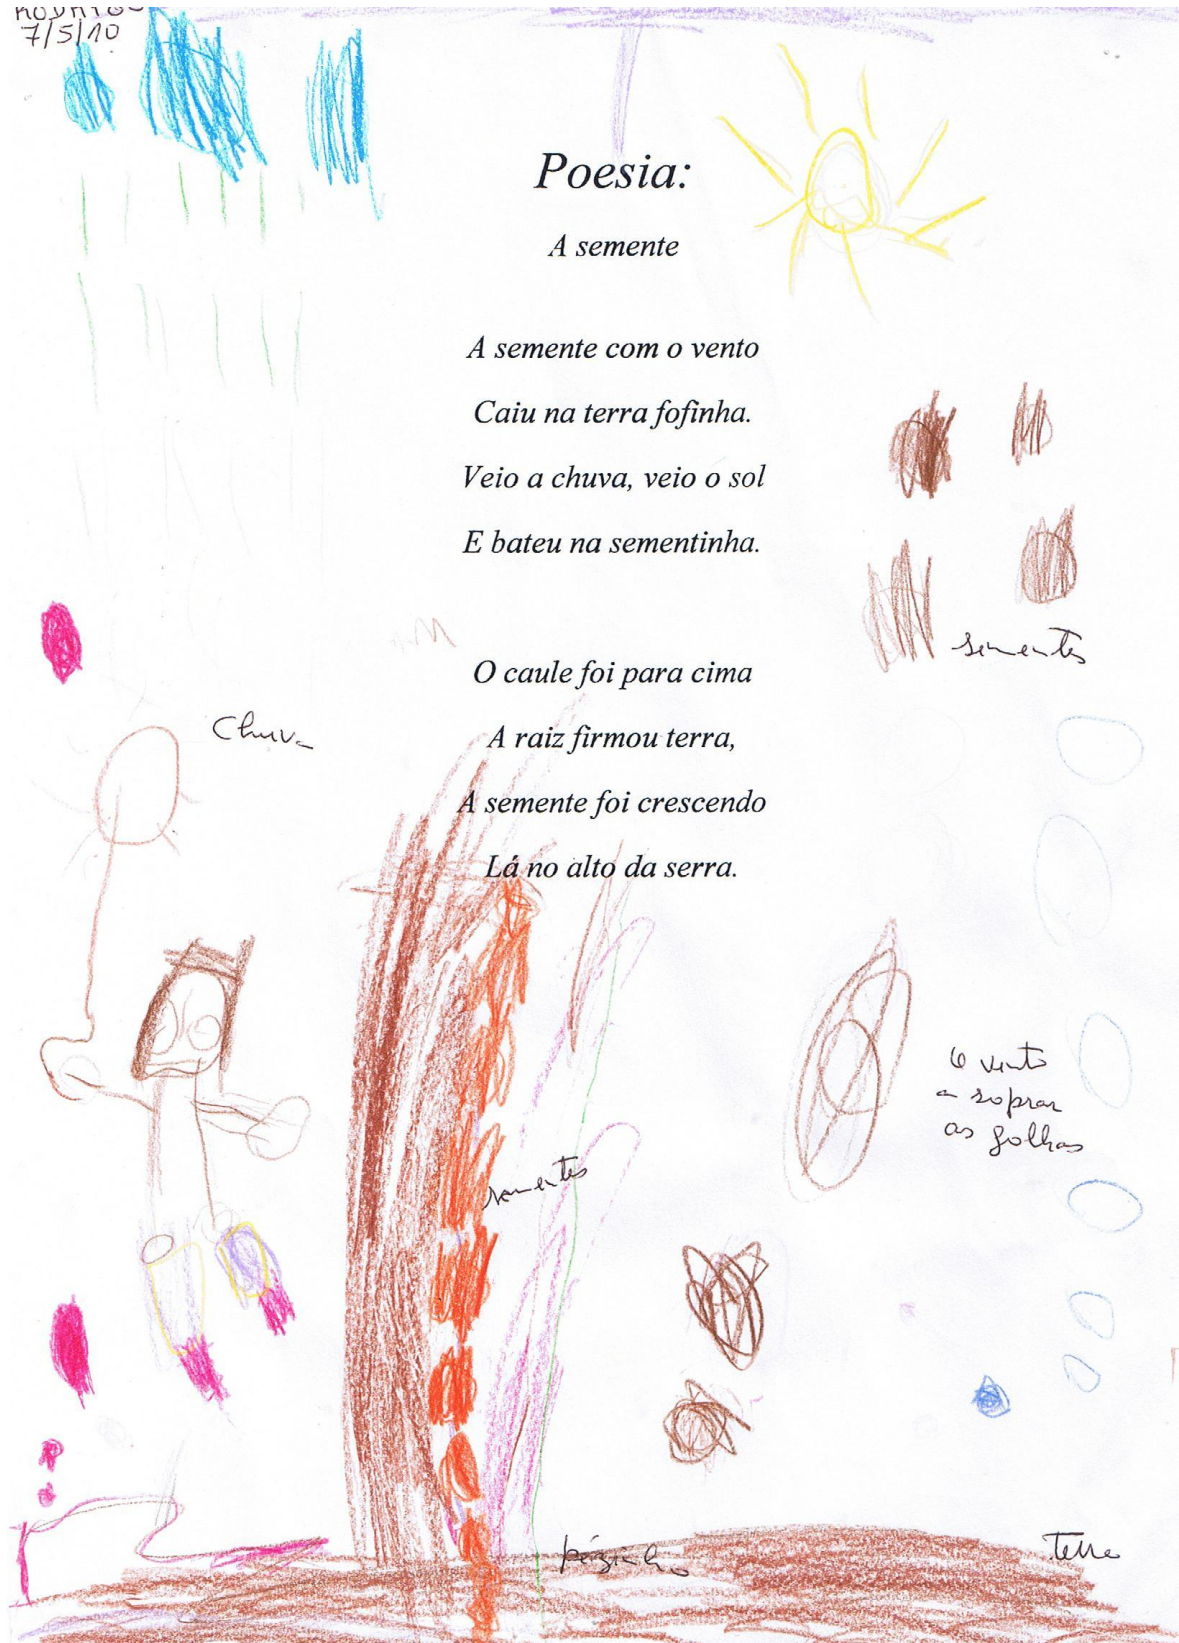 RODRIGO
7/5/10
Poesia:
A semente
A semente com o vento
Caiu na terra fofinha.
Veio a chuva, veio o sol
E bateu na sementinha.
sementes
O caule foi para cima
Chuva
A raiz firmou terra,
A semente foi crescendo
Lá no alto da serra.
O vento
a soprar
as folhas
sementes
pézinho
Terra